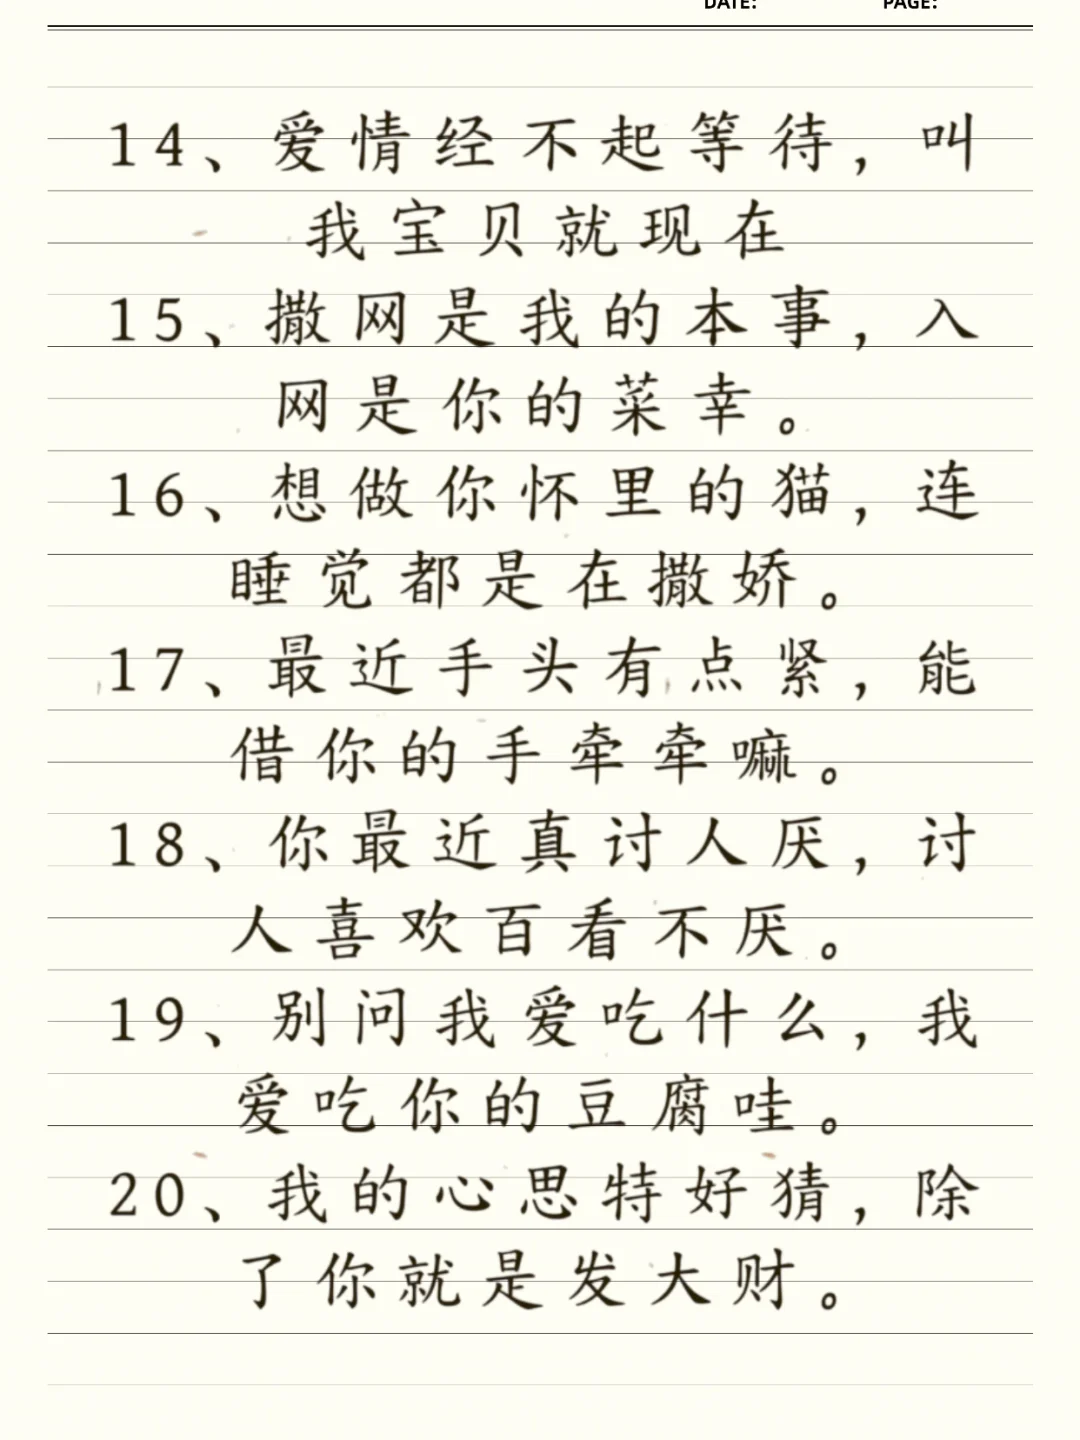 DATE: PAGE:
14、爱情经不起等待，叫
我宝贝就现在
15、撒网是我的本事，入
网是你的菜幸。
16、想做你怀里的猫，连
睡觉都是在撒娇。
17、最近手头有点紧，能
借你的手牵牵嘛。
18、你最近真讨人厌，讨
人喜欢百看不厌。
19、别问我爱吃什么，我
爱吃你的豆腐哇。
20、我的心思特好猜，除
了你就是发大财。